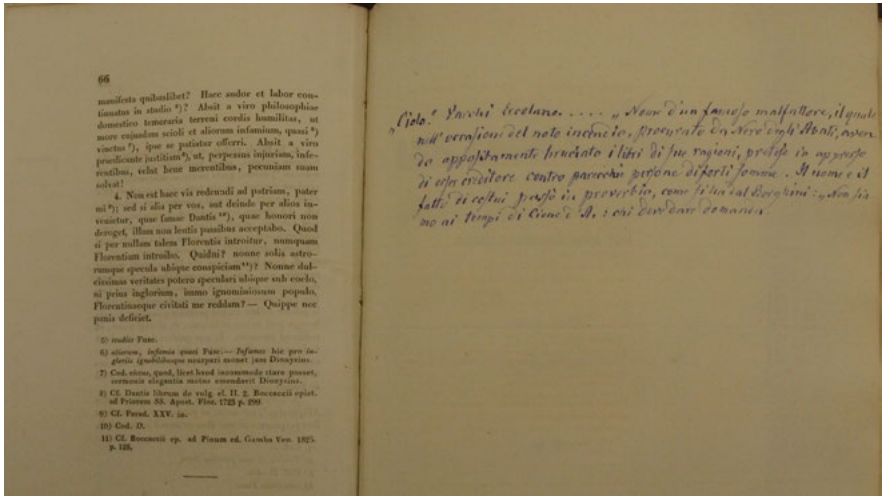 66
manifesta quibuslibet? Haec sudor et labor con-
tinuatus in studio ⁵)? Absit a viro philosophiae
domestico temeraria terreni cordis humilitas, ut
more cujusdam scioli et aliorum infamium, quasi ⁶)
vinctus ⁷), ipse se patiatur offerri. Absit a viro
praedicante justitiam ⁸), ut, perpessus injuriam, infe-
rentibus, velut bene merentibus, pecuniam suam
solvat!
4. Non est haec via redeundi ad patriam, pater
mi ⁹); sed si alia per vos, aut deinde per alios in-
venietur, quae famae Dantis ¹⁰), quae honori non
deroget, illam non lentis passibus acceptabo. Quod
si per nullam talem Florentia introitur, numquam
Florentiam introibo. Quidni? nonne solis astro-
rumque specula ubique conspiciam ¹¹)? Nonne dul-
cissimas veritates potero speculari ubique sub coelo,
ni prius inglorium, immo ignominiosum populo,
Florentinaeque civitati me reddam? — Quippe nec
panis deficiet.
5) studiis Fusc.
6) aliorum, infamia quasi Fusc. — Infames hic pro in-
gloriis ignobilibusque usurpari monet jam Dionysius.
7) Cod. victus, quod, licet haud incommode stare posset,
sermonis elegantia motus emendavit Dionysius.
8) Cf. Dantis librum de vulg. el. II. 2. Boccaccii epist.
ad Priorem SS. Apost. Flor. 1723 p. 299.
9) Cf. Parad. XXV. in.
10) Cod. D.
11) Cf. Boccaccii ep. ad Pinum ed. Gamba Ven. 1825.
p. 128.
„Ciolo." Varchi Ercolano. . . . . „Nome d'un famoso malfattore, il quale
nell' occasione del noto incendio, procurato da Nero degli Abati, aven
do appositamente bruciato i libri di sue ragioni, pretese in appresso
di esser creditore contro parecchie persone di forti somme. Il nome e il
fatto di costui passò in proverbio, come si ha dal Borghini: „Non sia
mo ai tempi di A. : chi domanda